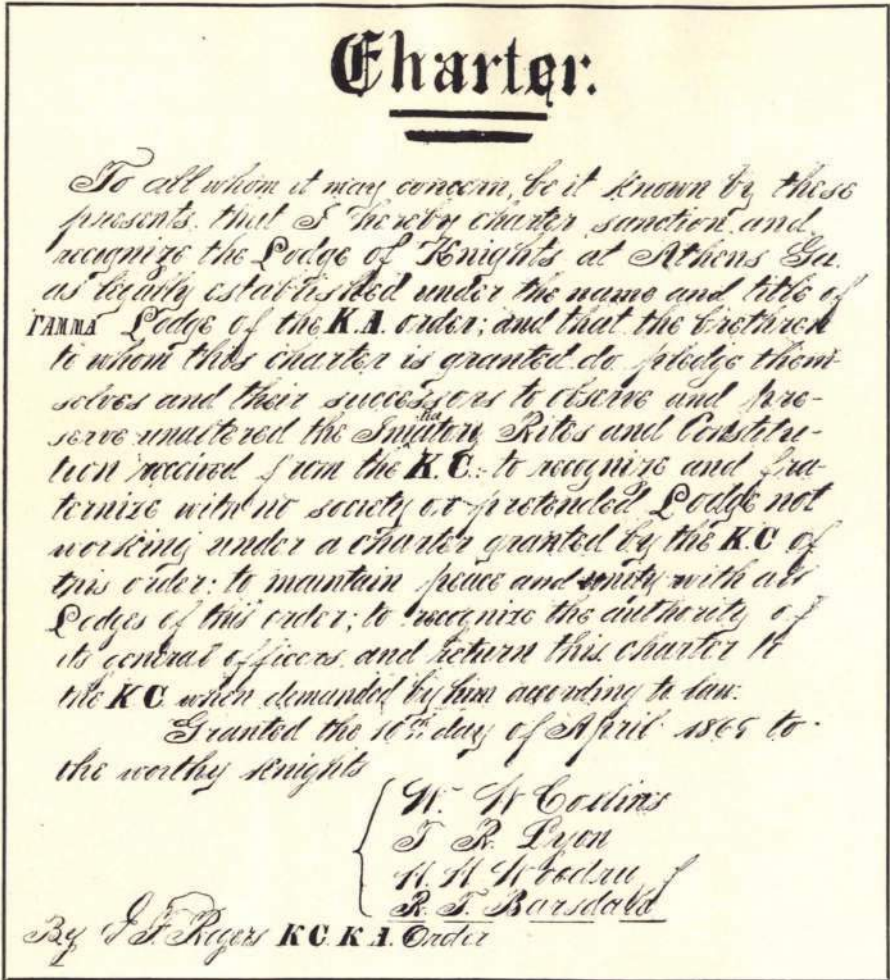 Charter.
To all whom it may concern, be it known by these
presents. that I hereby charter sanction and
recognize the Lodge of Knights at Athens Ga.
as legally established under the name and title of
ΓAMMA Lodge of the K.A. order; and that the brethren
to whom this charter is granted do pledge them-
selves and their successors to observe and pre-
serve unaltered the Initiatory Rites and Constitu-
tion received from the K.C.: to recognize and fra-
ternize with no society or pretended Lodge not
working under a charter granted by the K.C of
this order: to maintain peace and unity with all
Lodges of this order; to recognize the authority of
its general officers and return this charter to
the K C when demanded by him according to law.
Granted the 10th day of April
to
the worthy Knights
W. W Collins
T R. Lyon
W. W Woodruf f
R. T. Barsdale
By J F. Rogers K C. K A. Order